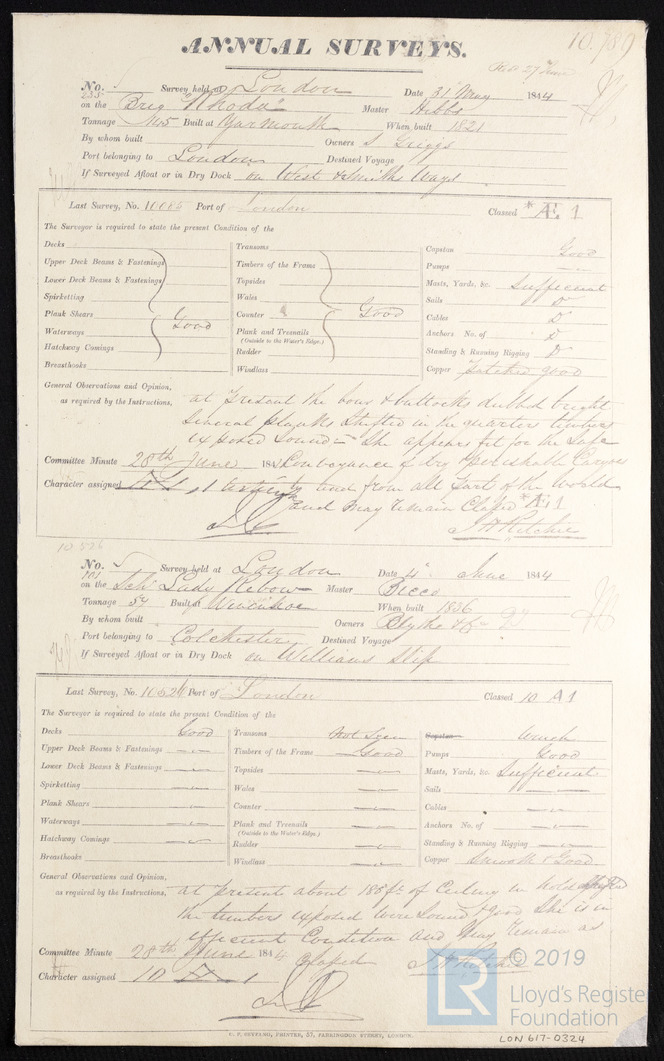 ANNUAL SURVEYS.
10.789
Rec 27 June
No. 5 Survey held at London Date 31 May 1844
235 on the Brig "Rhoda" Master Hibbs
Tonnage Built at Yarmouth When built 1821
By whom built Owners S Griggs
Port belonging to London Destined Voyage
If Surveyed Afloat or in Dry Dock on West & Smiths Ways
Last Survey, No. 10085 Port of London Classed *Æ 1
The Surveyor is required to state the present Condition of the
Decks
Upper Deck Beams & Fastenings
Lower Deck Beams & Fastenings
Spirketting
Plank Shears Good
Waterways
Hatchway Comings
Breasthooks
Transoms
Timbers of the Frame
Topsides
Wales
Counter Good
Plank and Treenails
(Outside to the Water's Edge.)
Rudder
Windlass
Capstan Good
Pumps
Masts, Yards, &c. Sufficient
Sails Do
Cables Do
Anchors No. of Do
Standing & Running Rigging Do
Copper patched good
General Observations and Opinion,
as required by the Instructions,
at present the bows & buttocks dubbed bright
several planks shifted in the quarters timbers
exposed sound - She appears fit for the safe
Committee Minute 28th June 1844 Conveyance of dry & perishable Cargoes
Character assigned Æ 1 to and from all parts of the World
and May Remain Classed *Æ 1
J H Ritchie
10526
No. 5 Survey held at London Date 4 June 1844
101 on the Schr Lady Rebow Master Becco
Tonnage 54 Built at Wivenhoe When built 1836
By whom built Owners Blyth & Co
Port belonging to Colchester Destined Voyage
If Surveyed Afloat or in Dry Dock on Williams Slip
Last Survey, No. 10526 Port of London Classed 10 A 1
The Surveyor is required to state the present Condition of the
Decks Good
Upper Deck Beams & Fastenings
Lower Deck Beams & Fastenings
Spirketting
Plank Shears
Waterways
Hatchway Comings
Breasthooks
Transoms Not Seen
Timbers of the Frame Good
Topsides
Wales
Counter
Plank and Treenails
(Outside to the Water's Edge.)
Rudder
Windlass
Capstan Winch
Pumps Good
Masts, Yards, &c. Sufficient
Sails
Cables
Anchors No. of
Standing & Running Rigging
Copper Smooth & Good
General Observations and Opinion,
as required by the Instructions,
at present about 185 ft of Ceiling in hold shifted
the timbers exposed were Sound & good She is in
efficient Condition and May Remain as
Committee Minute 28th June 1844 Classed
Character assigned 10 A 1
J H Ritchie
C. F. SEYFANG, PRINTER, 57, FARRINGDON STREET, LONDON.
© 2019
LR
Lloyd's Register
Foundation
LON 617-0324